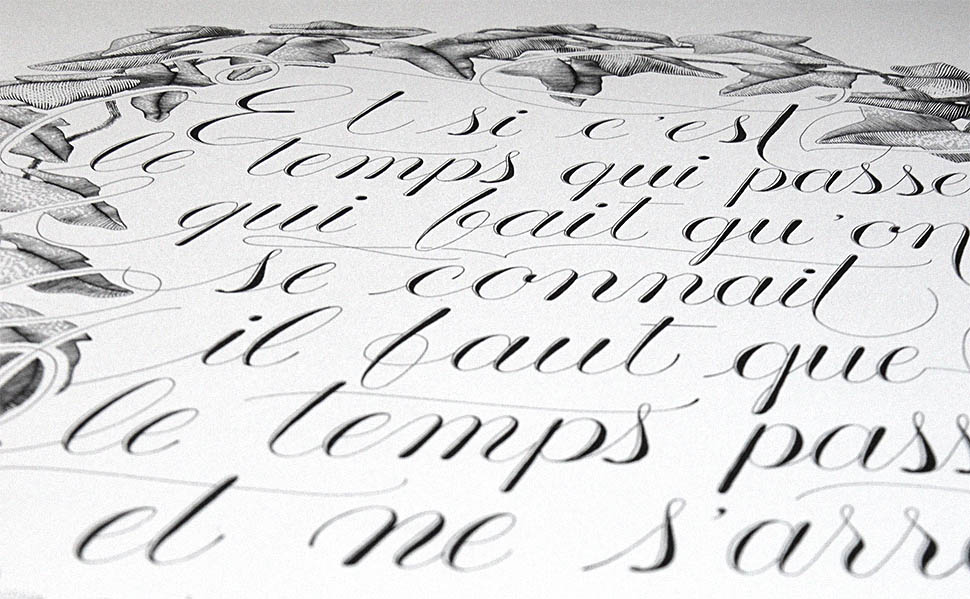 Et si c'est
le temps qui passe
qui fait qu'on
se connait
il faut que
le temps pass
et ne s'arr